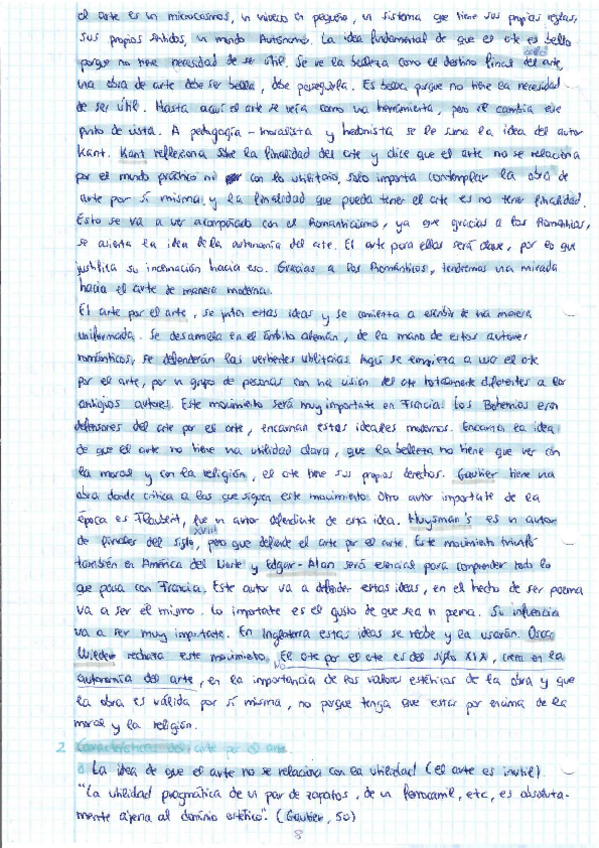 el arte es un microcosmos, un universo en pequeño, un sistema que tiene sus propias reglas,
sus propios sentidos, un mundo Autónomo. La idea fundamental de que el arte es bello
porque no tiene necesidad de ser útil. Se ve la belleza como el destino final del arte,
una obra de arte debe ser bella, debe perseguirla. Es bella porque no tiene la necesidad
de ser útil. Hasta aquí el arte se veía como una herramienta, pero él cambia ese
punto de vista. A pedagogía - moralista y hedonista se le suma la idea del autor
Kant. Kant reflexiona sobre la finalidad del arte y dice que el arte no se relaciona
por el mundo práctico ni con lo utilitario, solo importa contemplar la obra de
arte por sí misma y la finalidad que pueda tener el arte es no tener finalidad.
Esto se va a ver acompañado con el Romanticismo, ya que gracias a los Románticos,
se asienta la idea de la autonomía del arte. El arte para ellos será clave, por lo que
justifica su inclinación hacia eso. Gracias a los Románticos, tendremos una mirada
hacia el arte de manera moderna.
El arte por el arte, se juntan estas ideas y se comienza a escribir de una manera
uniformada. Se desarrolla en el ámbito alemán, de la mano de estos autores
románticos, se defenderán las vertientes utilitarias. Aquí se empieza a usar el arte
por el arte, por un grupo de personas con una visión del arte totalmente diferentes a los
antiguos autores. Este movimiento será muy importate en Francia. Los Bohemios eran
defensores del arte por el arte, encarnan estas ideales modernos. Encarna la idea
de que el arte no tiene una utilidad clara, que la belleza no tiene que ver con
la moral y con la religión, el arte tiene sus propios derechos. Gautier tiene una
obra donde critica a los que siguen este movimiento. Otro autor importate de la
época es Flaubert, fue un autor defendiente de esta idea. Huysman's es un autor
de finales del siglo XVIII, pero que defiende el arte por el arte. Este movimiento triunfó
también en América del Norte y Edgar-Alan será esencial para comprender todo lo
que pasa con Francia. Este autor va a defender estas ideas, en el hecho de ser poema
va a ser él mismo. Lo importate es el gusto de que sea un poema. Su influencia
va a ser muy importate. En Inglaterra estas ideas se recibe y la usarán. Oscar
Wilder rechaza este movimiento. El arte por el arte es del siglo XIX, creen en la
autonomía del arte, en la importancia de los valores estéticos de la obra y que
la obra es válida por sí misma, no porque tenga que estar por encima de la
moral y la religión.
2. Características del arte por el arte.
La idea de que el arte no se relaciona con la utilidad (el arte es inútil).
"La utilidad pragmática de un par de zapatos, de un ferrocarril, etc, es absoluta-
mente ajena al dominio estético". (Gautier, 50)
8